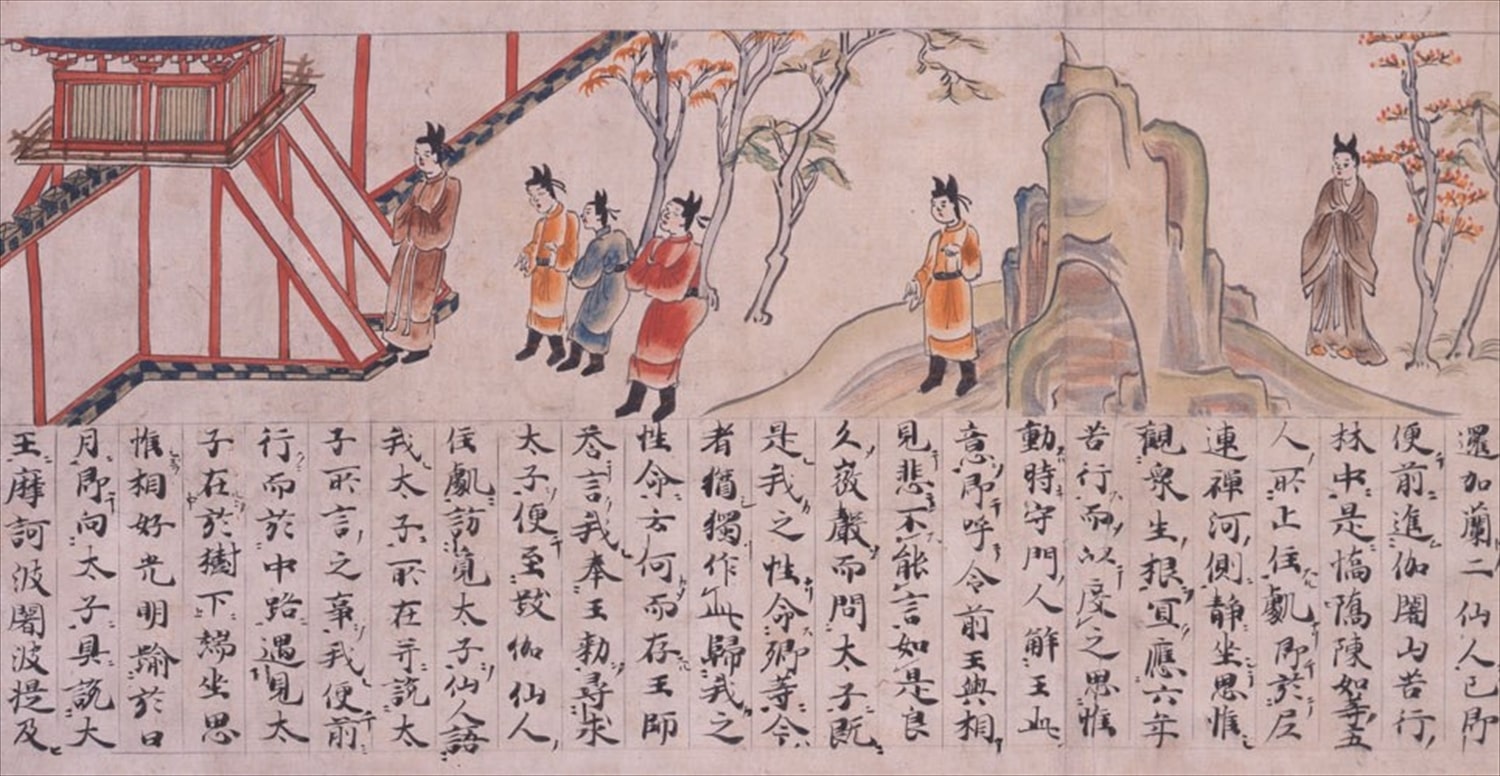 邏加蘭二仙人已即
便前進伽闍山苦行
林中是憍陳如等五
人所止住處即於尼
連禪河側靜坐思惟
觀衆生根宜應六年
苦行而以度之思惟
動時守門人解王此
意即呼令前王與相
見悲不能言如是良
久微聲而問太子既
是我之性命卿等今
者猶獨作此歸我之
性命云何而存王師
荅言我奉王勅尋求
太子便至跋伽仙人
住處訪覓太子仙人語
我太子所在并說太
子所言之事我便前
行而於中路遇見太
子在於樹下端坐思
惟相好光明踰於日
月即向太子具說大
王摩訶波闍波提及